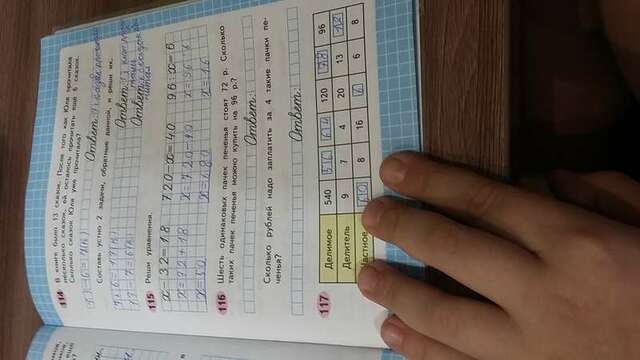 114 В книге было 13 сказок. После того как Юля прочитала
несколько сказок, ей осталось прочитать ещё 6 сказок.
Сколько сказок Юля уже прочитала?
13-6=7(к)
Ответ: 7
Составь устно 2 задачи, обратные данной, и реши их.
7+6=13(к)
Ответ: 13
13-7=6(к)
Ответ:
115 Реши уравнения.
x-32=18 720-x=40 96:x=6
x=32+18 x=720-40 x=96:6
x=50 x=680 x=16
116 Шесть одинаковых пачек печенья стоят 72 р. Сколько
таких пачек печенья можно купить на 96 р.?
Ответ:
Сколько рублей надо заплатить за 4 такие пачки пе-
ченья?
Ответ:
117 Делимое 540 56 64 120 78 96
Делитель 9 7 4 20 13 12
Частное 60 8 16 6 6 8